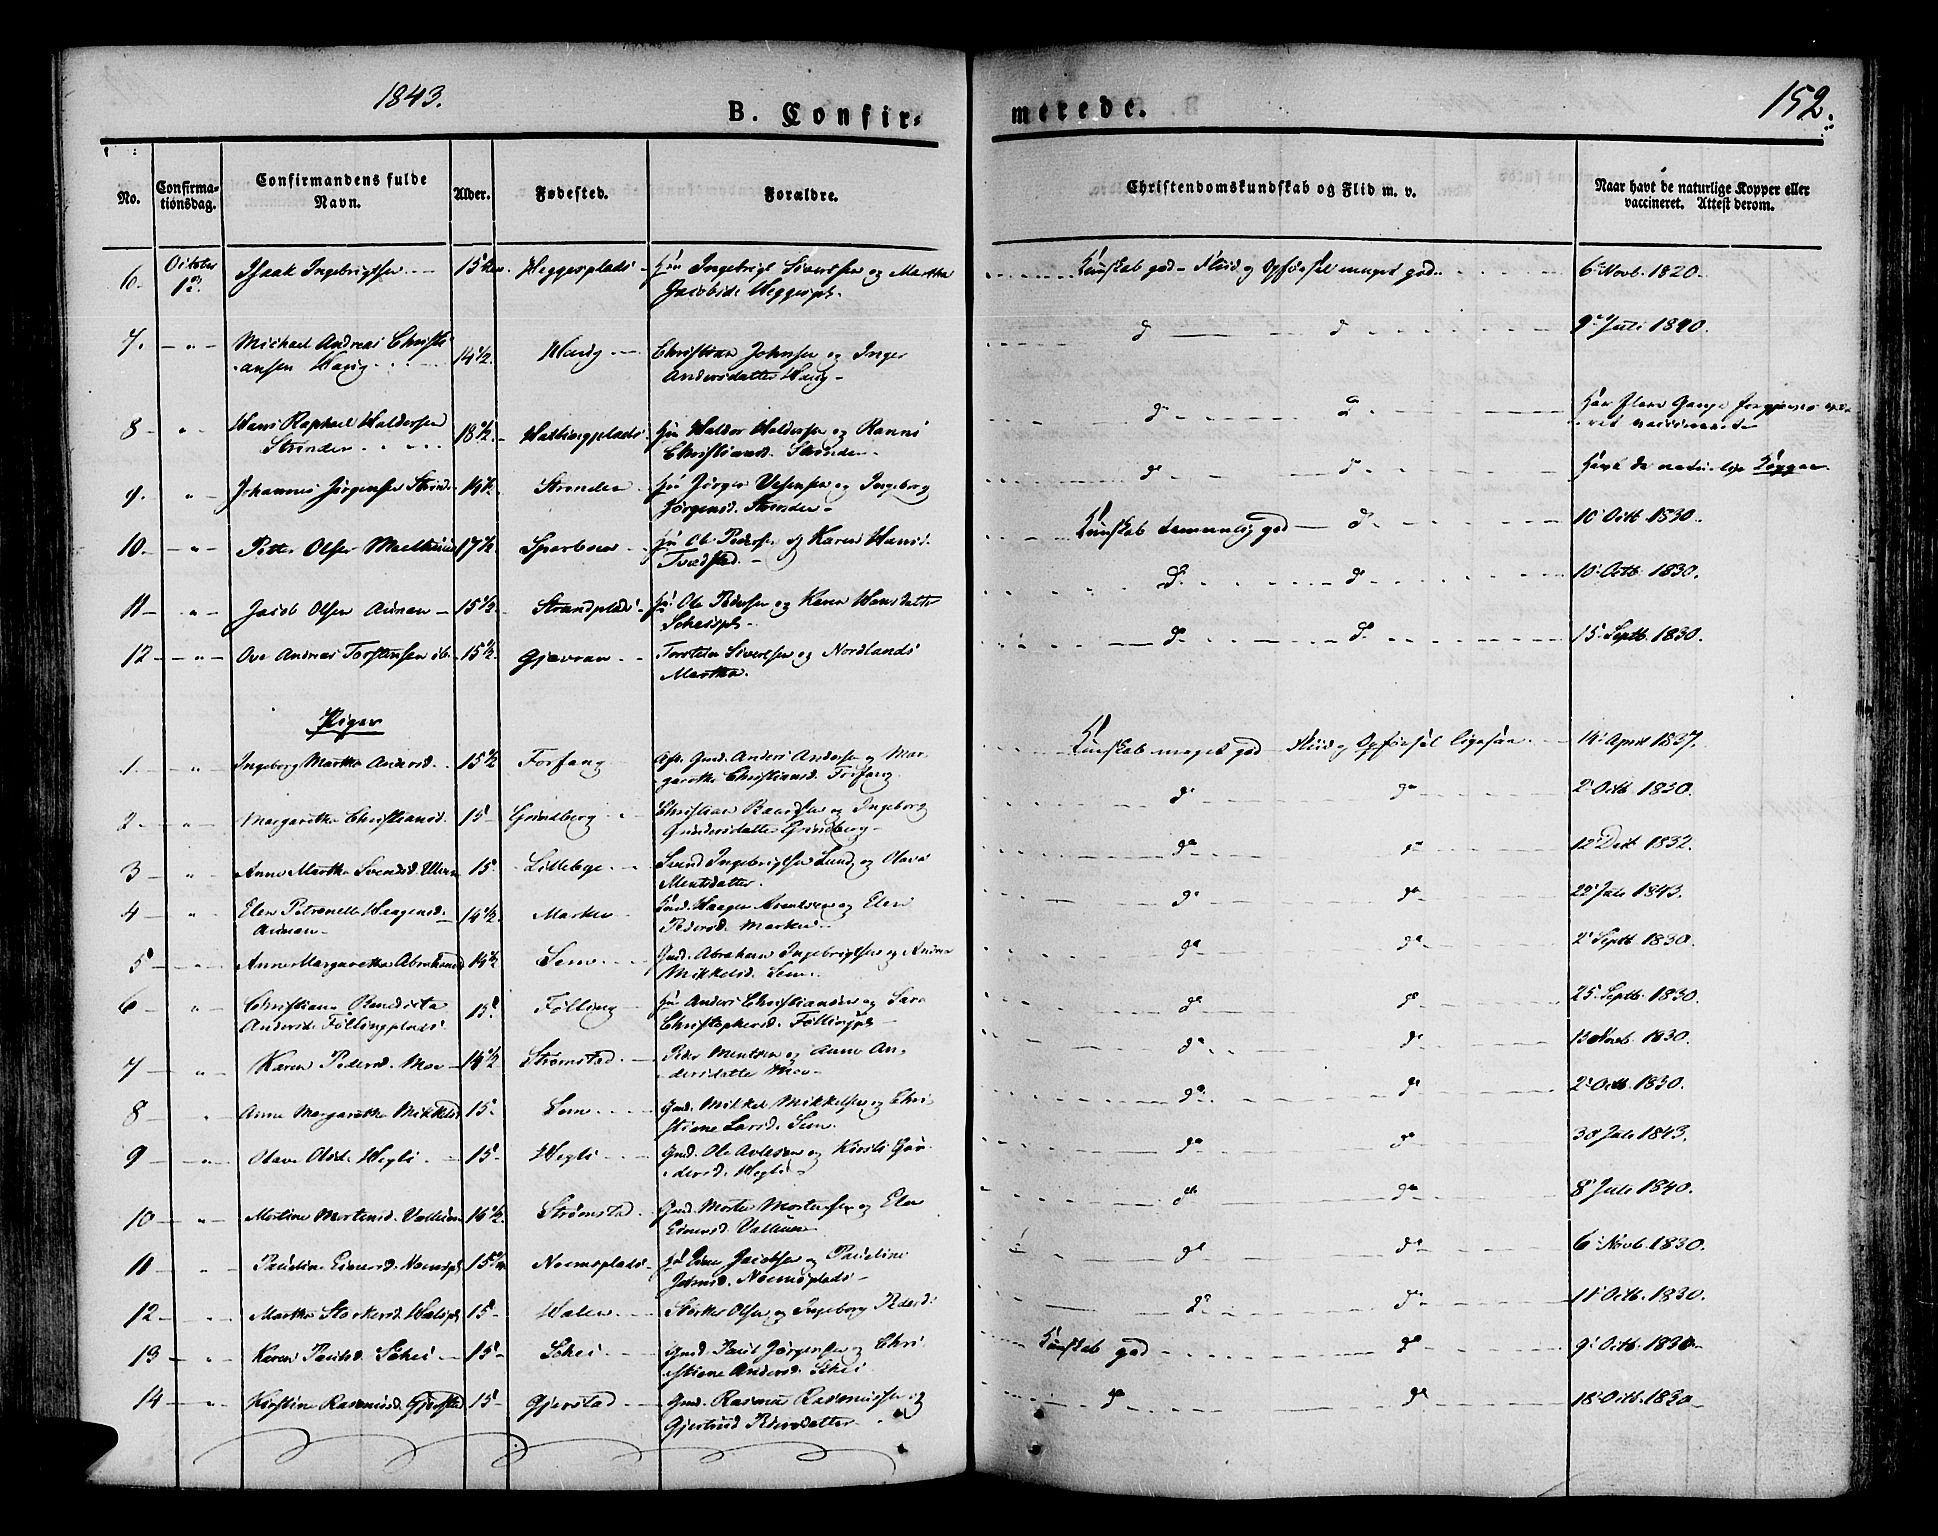 1843.
B. Confir-
merede.
152.
No.
Confirma-
tionsdag.
Confirmandens fulde
Navn.
Alder.
Fødested.
Forældre.
Christendomskundskab og Flid m. v.
Naar havt de naturlige Kopper eller
vaccineret. Attest derom.
6. October 1. Isaak Ingebrigtsen 15 Heggesplads Ingebrigt Sivertsen og Martha
Jacobsd. Heggespl.
Kundskab god - Flid og Opførsel meget god 6 Novb. 1820.
7. " Michael Andreas Christi
ansen Haug 14 1/2. Haug Christian Johnsen og Inger
Andersdatter Haug
d d 9 Juli 1840.
8 " Hans Raphael Haldorsen
Strinden 18 1/2 Hallingplads Haldor Haldorsen og Ranni
Christiansd. Strinden
d d Har flere Gange forgjeves være
ret vaccineret
9. " Johannes Jørgensen Strinde 19 1/2 Strinden Jørgen Jensen og Ingeborg
Jørgensd. Strinden
d d Havt de naturlige Kopper
10. " Petter Olsen 17 1/2 Sparboen Ole Pedersen og Karen Hansd.
Kundskab temmelig god d 10 Octb 1830.
11 " Jacob Olsen Aunan 15 1/2 Strandplads Ole Pedersen og Karen Hansdatter
Scheispl.
d. d 10 Octb. 1830.
12 " Ove Andreas Torstensen ib. 15 1/2 Gjævran Torsten Sivertsen og Nordlands
Martha.
d d 15 Septb. 1830.
Piger
1. " Ingeborg Martha Andersd. 15 1/2 Forfang Afd. Gmd. Anders Andersen og Mar-
garetha Christiansd. Forfang
Kundskab meget god Flid og Opførsel ligesaa 14 April 1837.
2 " Margaretha Christiansd. 15 Grindberg Christian Baardsen og Ingeborg
Gundersdatter Grindberg
d d 2 Octb 1830.
3 " Anne Martha Svendsd. 15. Lillebge Svend Ingebrigtsen Lund og Olava
Mentsdatter.
d d 12 Dec 1832.
4 " Elen Petronelle Haagensd.
Aunan 14 1/2. Marken Gmd. Haagen Arentsen og Elen
Pedersd. Marken
d d 22 Juli 1843.
5 " Anne Margaretha Abrahamsd 14 1/2 Sem Gmd. Abraham Ingebrigtsen og Andrea
Mikkelsd. Sem.
d d 2 Septb. 1830.
6 " Christiane Benedicta
Andersd. Føllingplads 15 Følling Anders Christiansen og Sara
Christophersd. Føllingpl.
d d 25 Septb. 1830.
7 " Karen Pedersd. Moe 14 1/2 Strømstad Peder Mentsen og Anne An-
dersdatter Moe
d d 13 Novb. 1830.
8 " Anne Margaretha Mikkelsd 15. Sem Gmd. Mikkel Mikkelsen og Chri-
stiane Larsd. Sem
d d 2 Octb. 1830.
9 " Olave Olsd. Hegli 15 Hegli Gmd. Ole Avlesen og Kirsti Gun-
dersd. Hegli
d d 30 Juli 1843.
10 " Martine Mortensd. Valleium 16 1/2. Strømstad Gmd. Morten Mortensen og Elen
Einersd. Valleium
d d 8 Juli 1840.
11 " Pauline Einersd. Noemspl 15 Noemsplads Einer Jacobsen og Pauline
Johnsd. Noemsplads
d d 6 Novb. 1830.
12 " Martha Storkersd. Walspl 15 Walen Storker Olsen og Ingeborg Pedersd.
d d 11 Octb. 1830.
13 " Karen Paulsd. Schei 15 Schei Gmd. Paul Jørgensen og Chri-
stiane Andersd. Schei
Kundskab god d 9 Octb. 1830
14 " Kirstine Rasmusd. Gjerstad 15 Gjerstad Gmd. Rasmus Rasmussen og
Gjertrud Pedersdatter
d d 18 Octb. 1830